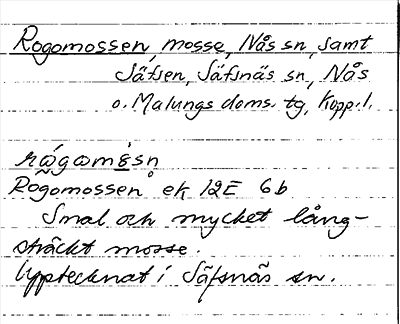 Rogomossen, mosse, Nås sn, samt
Säfsen, Säfsnäs sn, Nås
o. Malungs doms. tg, Kopp. l.
rågomåsn
Rogomossen ek 12E 6b
Smal och mycket lång-
sträckt mosse.
Upptecknat i Säfsnäs sn.